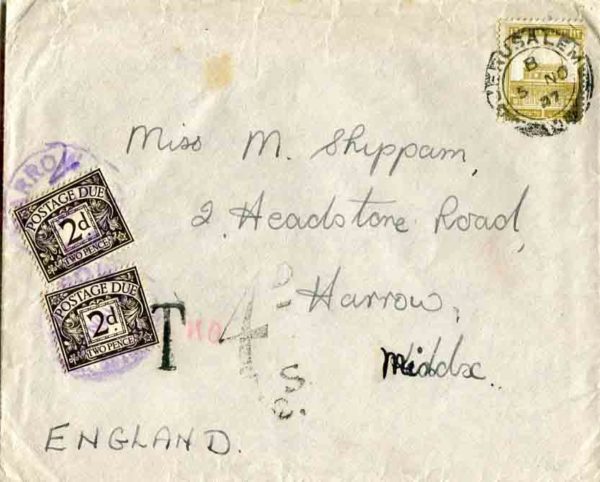 JERUSALEM
8
5 NO
37
Miss M. Shippam,
2, Headstone Road,
Harrow,
Middx.
ENGLAND.
POSTAGE DUE
2d.
TWO PENCE
POSTAGE DUE
2d.
TWO PENCE
T
4D
S.